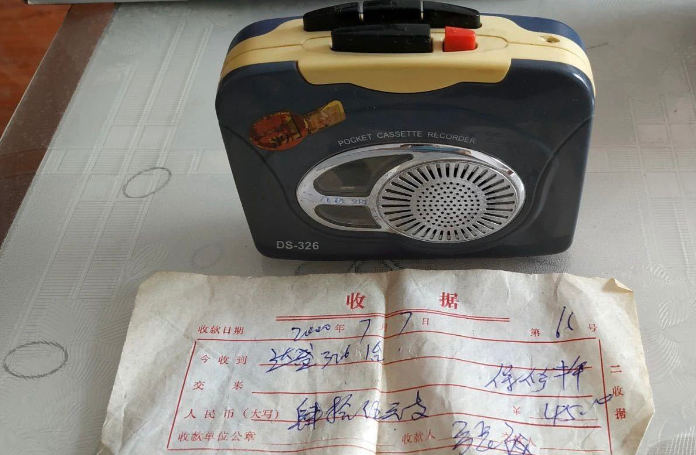 POCKET CASSETTE RECORDER
DS-326
收 据
收款日期 2020 年 7 月 7 日 第 号
今收到 达登326 1台
交 来 保修半年
人民币(大写) 肆拾伍元 ¥ 45.00
收款单位公章 收款人
二收据